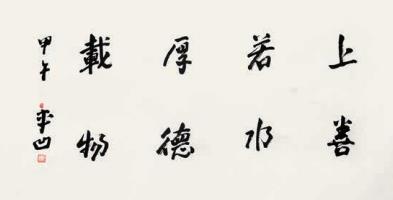 上善
若水
厚德
載物
甲午
平凹